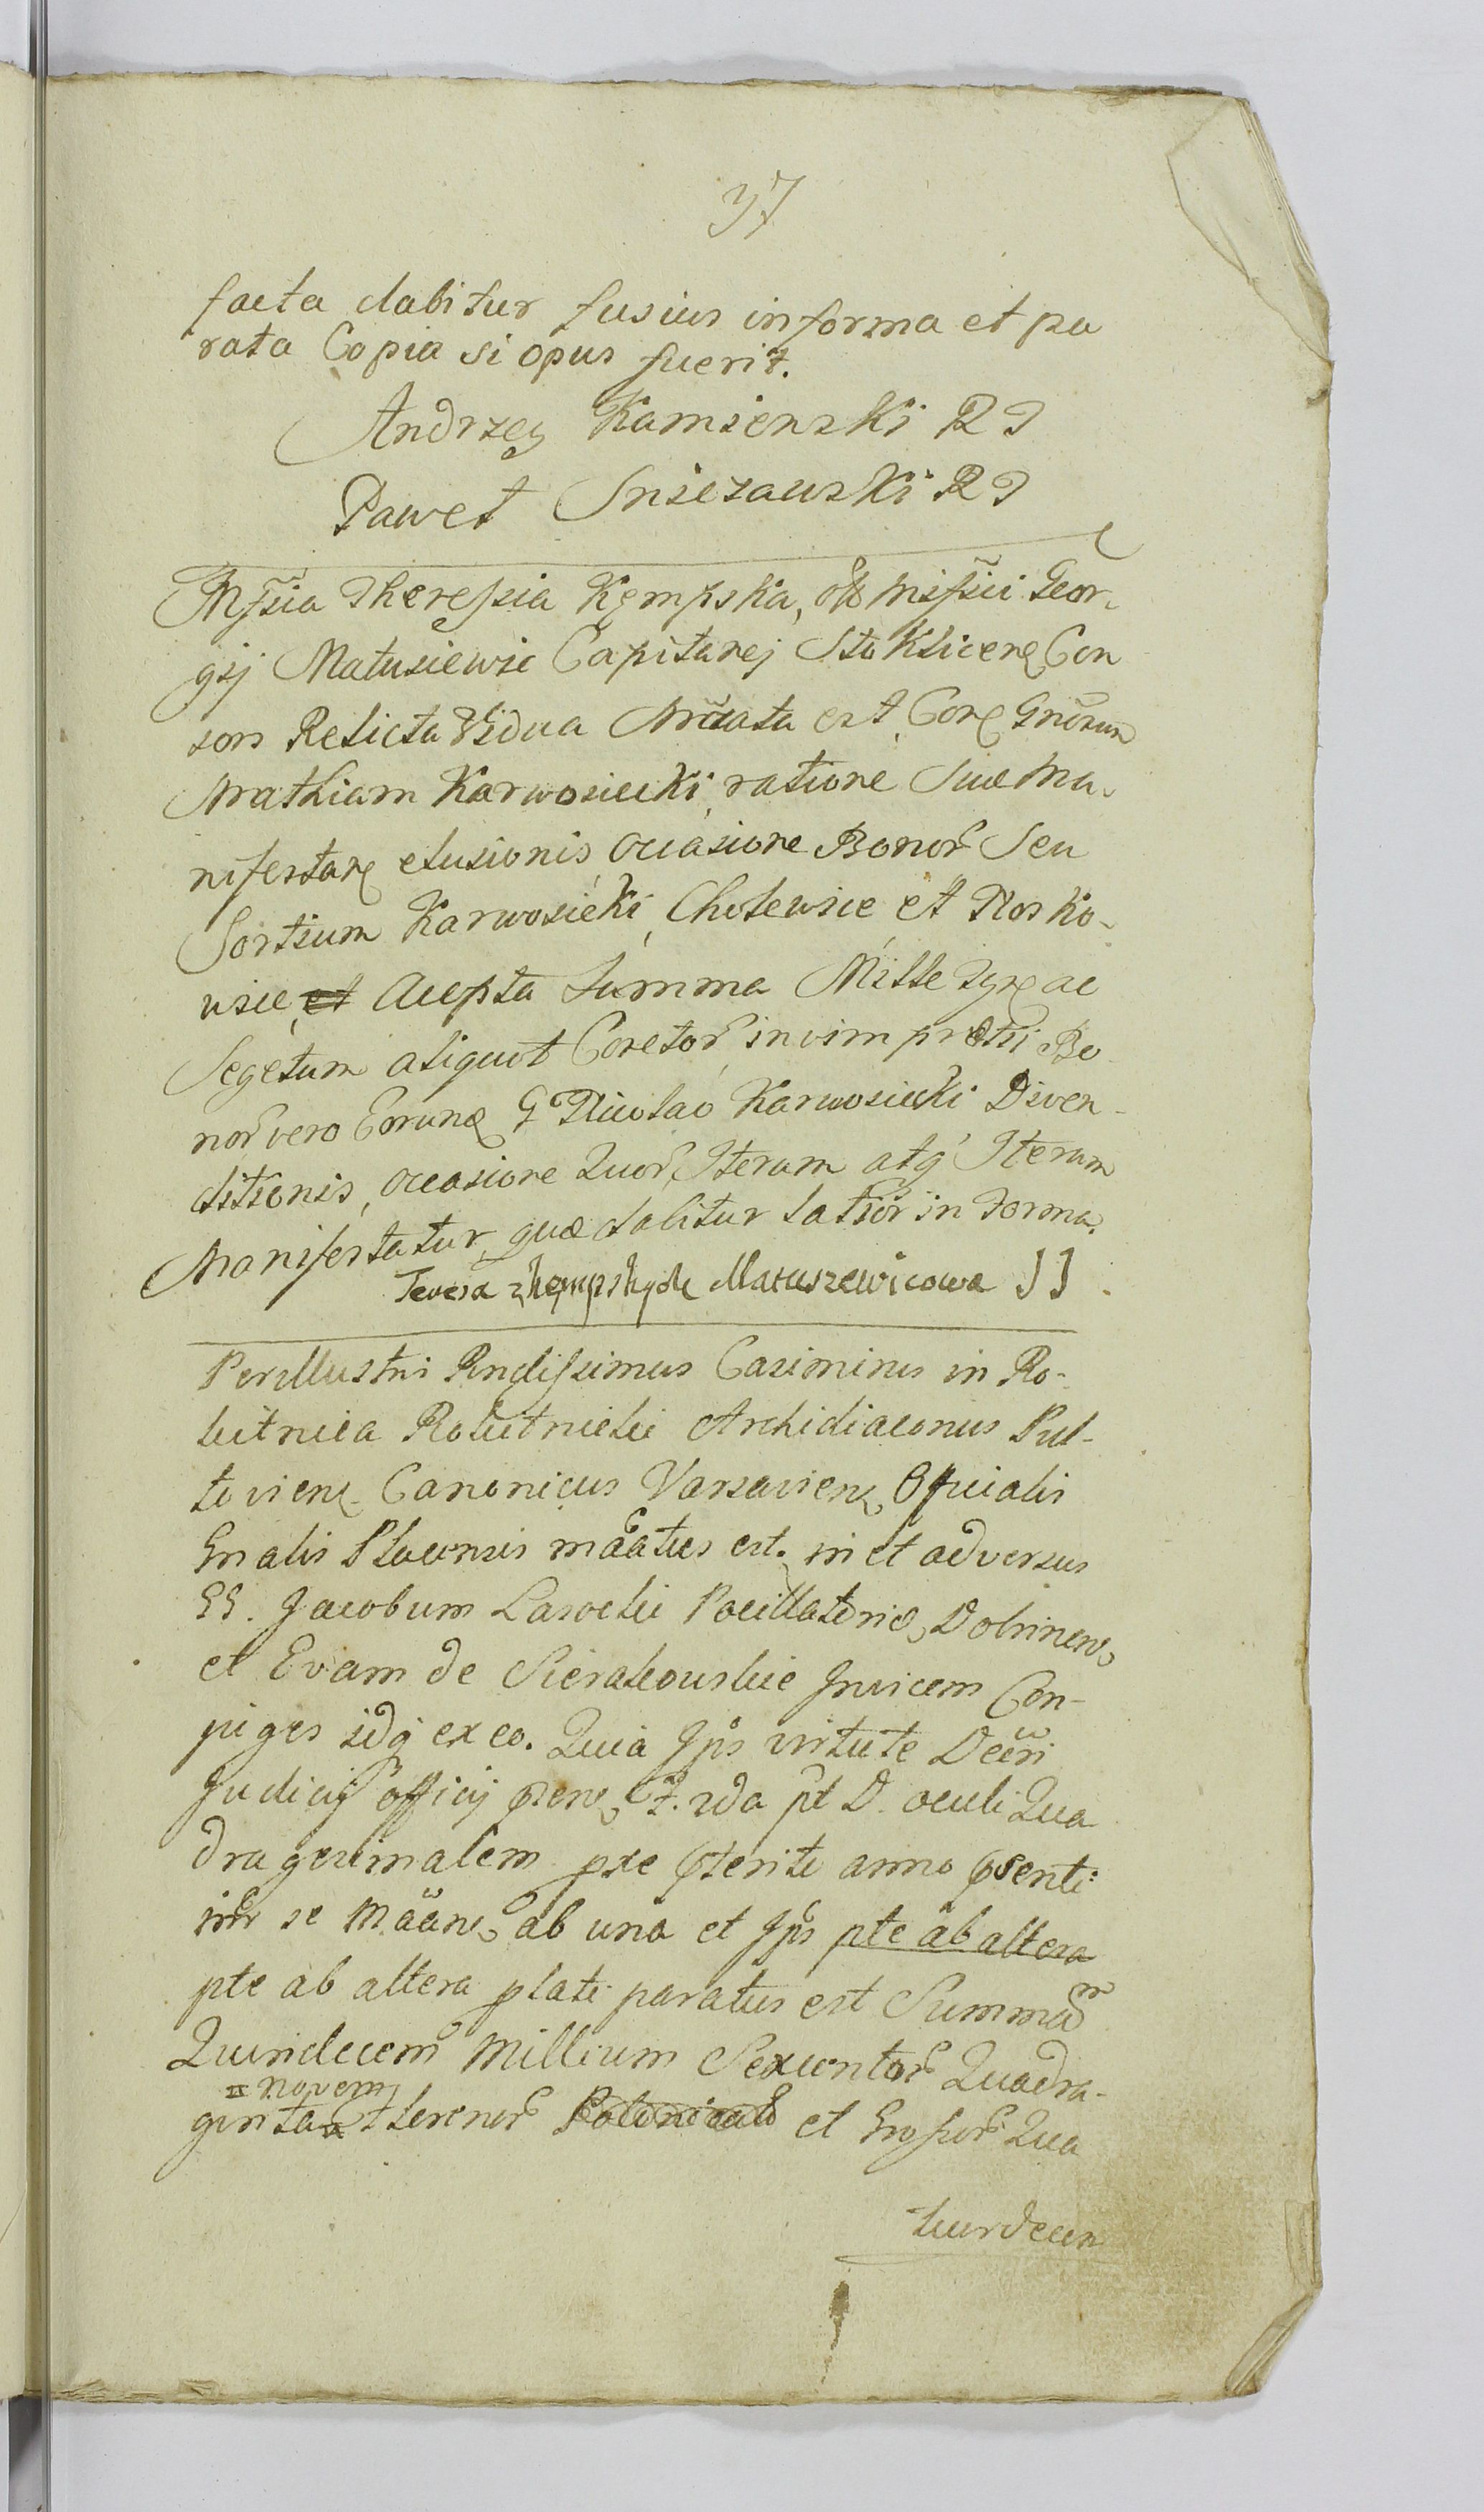 37
facta dabitur fusius in forma et pa
rata Copia si opus fuerit.
Andrzey Kamienski RJ
Paweł Sniezawski RJ
Mfica Therefsia Kempska, olim Mfici Geor-
gij Matusiewic Capitanej Stoklicen Con
sors Relicta Vidua Mãata est, Cor Gnõsum
Mathiam Karwosiecki, ratione Suæ Ma-
nifestan elusionis, occasione Bonor Seu
Sortium Karwosieki, Cholewice et Nosko-
wice, et Accepta Summa Mille Tyx ac
Segetum aliquot Coretor in vim prætii Bo
nor vero Eorum G Nicolao Karwosiecki Diven-
ditionis, occasione Quor, Iterum atq Iterum
Manifestatur, quæ dabitur latior in Forma.
Teresa z kempskych Matuszewicowa JJ.
Perillustris Rndifsimus Casimirus in Ro-
kitnica Rokitnicki Archidiaconus Pul-
tovien. Canonicus Varsavien, Officialis
Gnalis Plocensis mãatus est. in et adversus
GG. Jacobum Lasocki Pocillatoris Dobrinen,
et Evam de Sierakowskie Invicem Con-
juges idq ex eo. Quia Ips virtute Decri
Judicij officij pren, F. 2da pt D. oculi Qua
dragesimalem pxe pterite anno psenti
intr se Mãan, ab una et Ips pte ab altera
pte ab altera plati paratus est Summam
Quindecem Millium Sexcentor Quadra-
novem
ginta florenor Polonicalo et Grofsor Qua
tuordecim